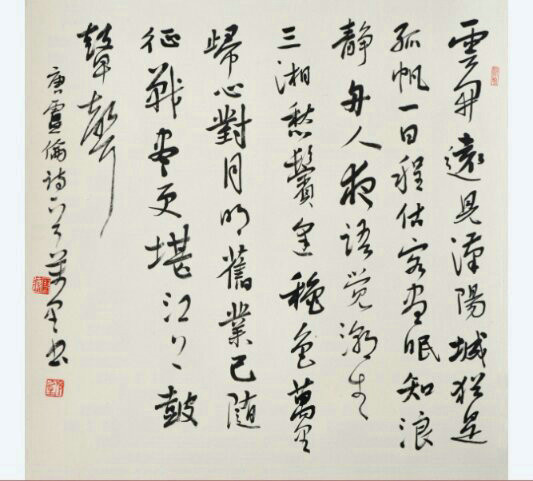 雲開遠見漢陽城猶是
孤帆一日程估客晝眠知浪
静舟人夜語覺潮生
三湘愁鬢逢穐色萬里
歸心對月明舊業已隨
征戰盡更堪江上鼓
鼙聲
唐盧倫詩